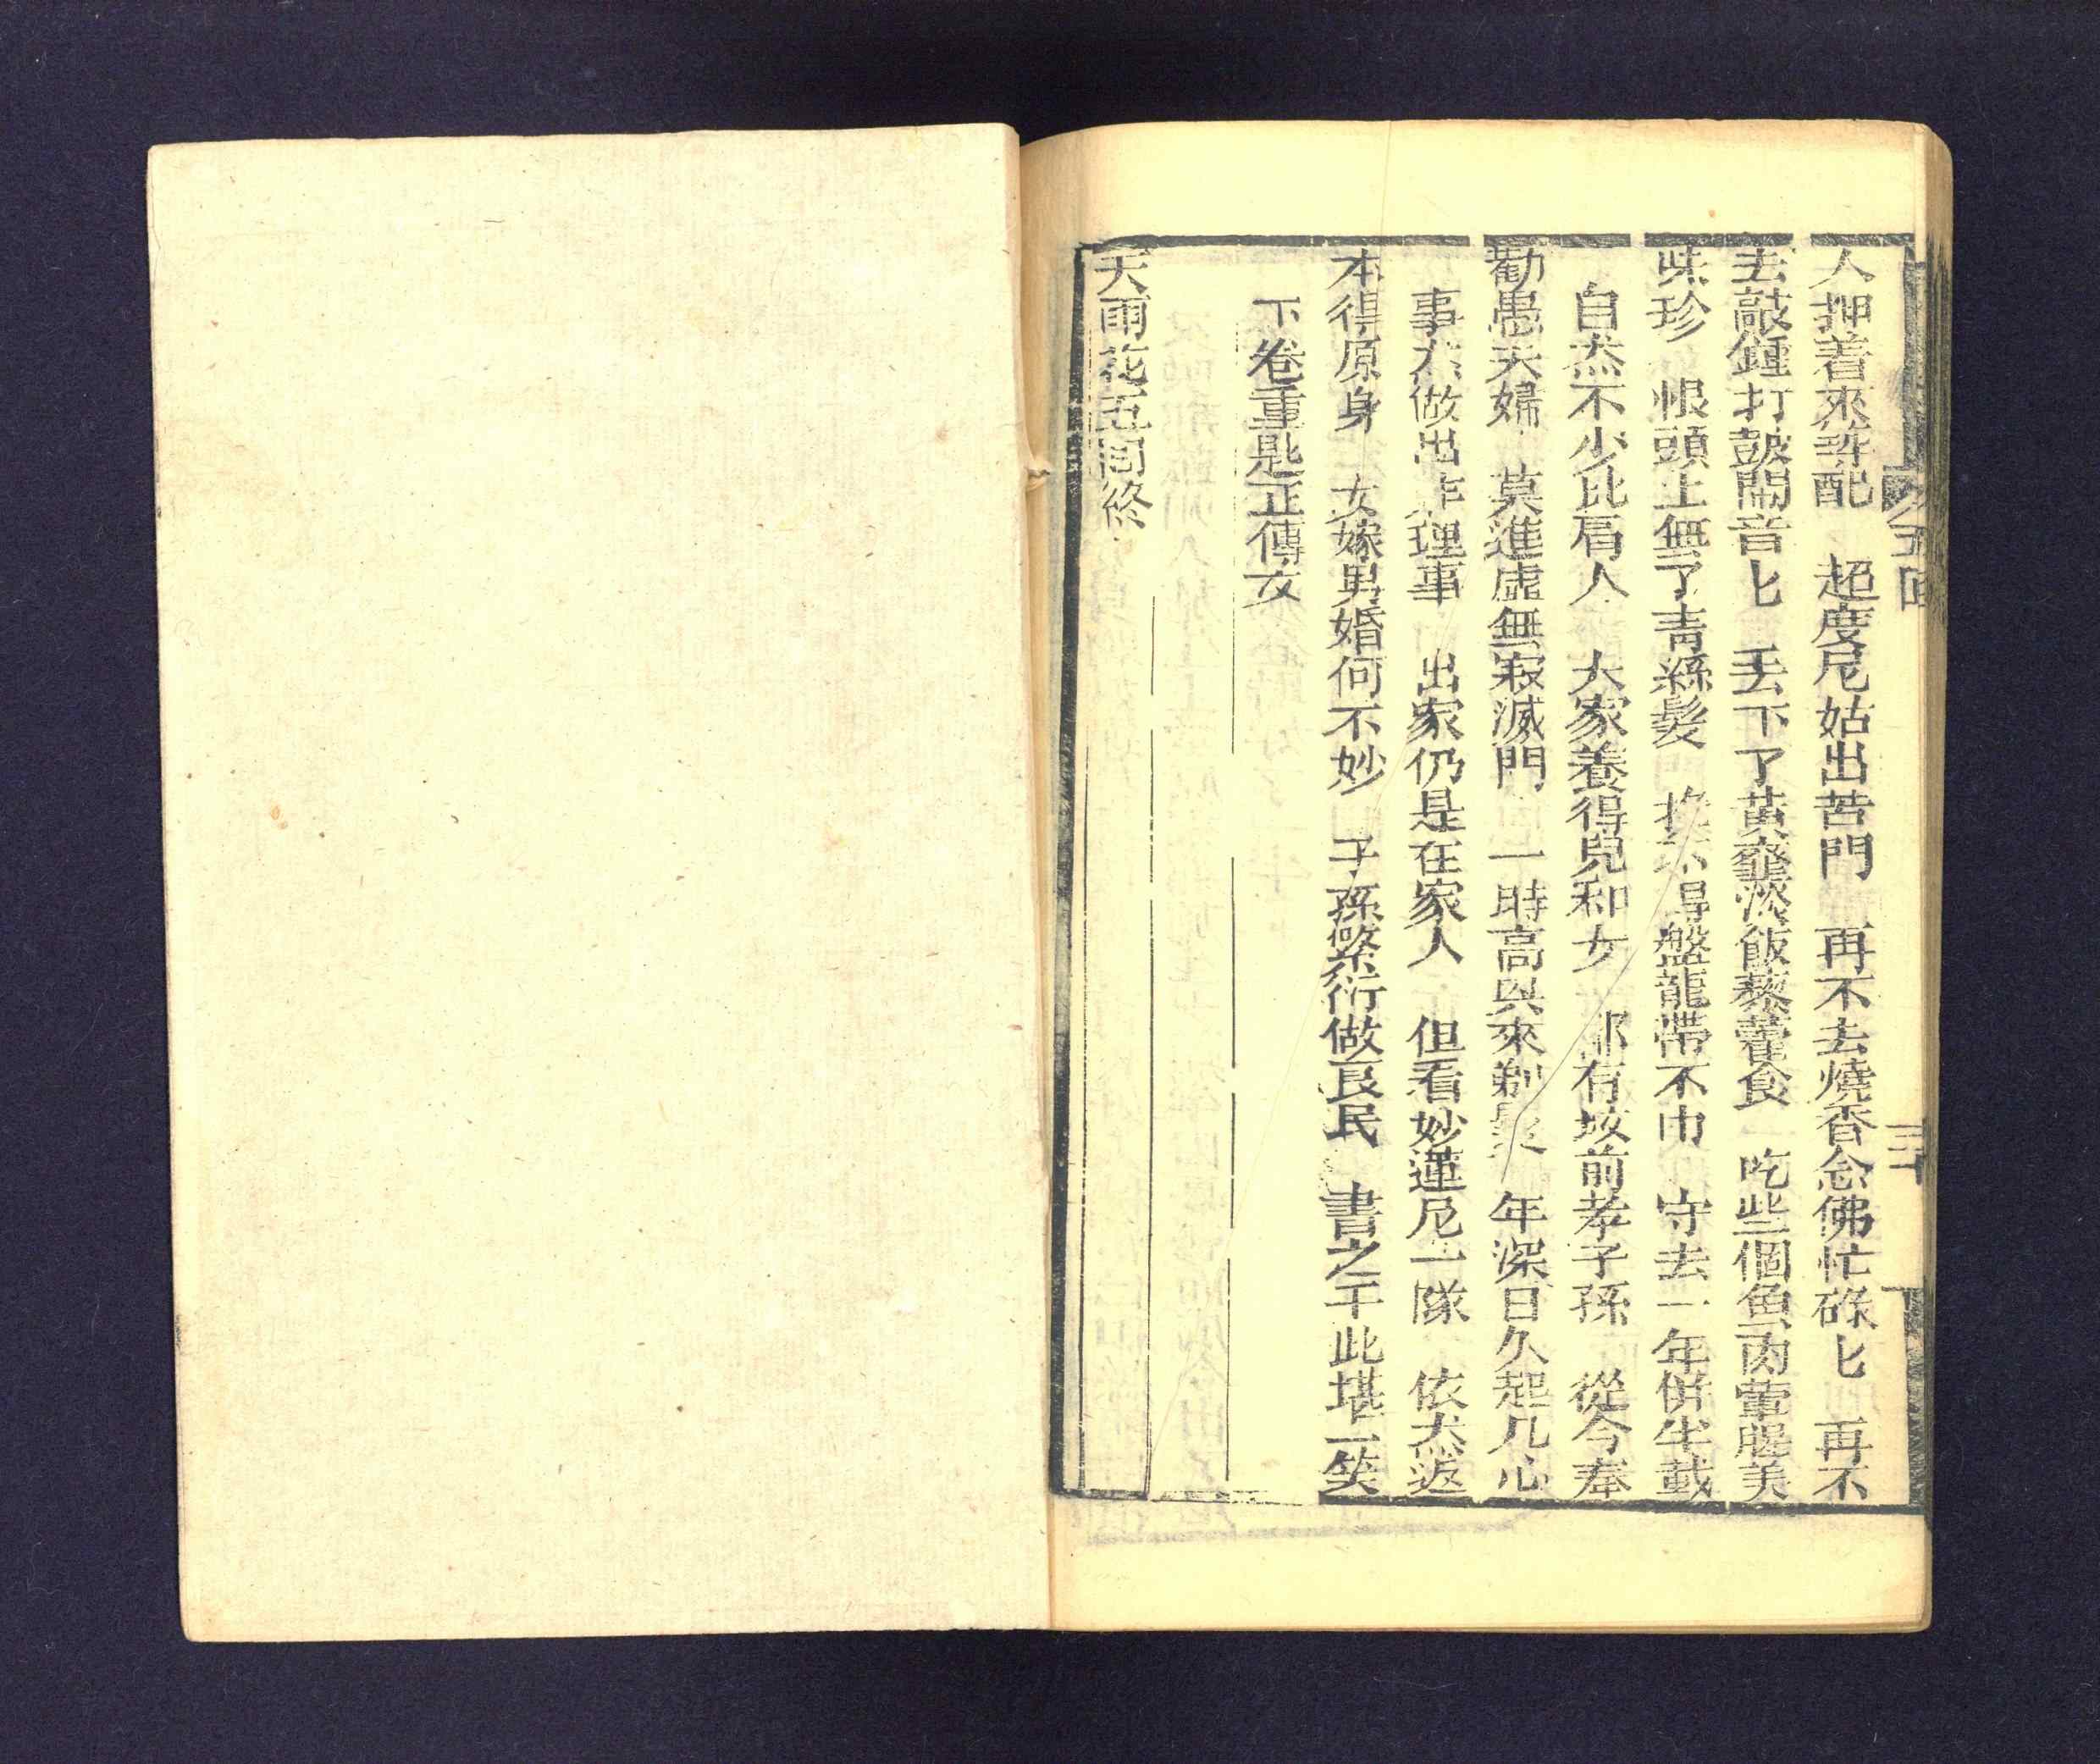 人押着來許配　超度尼姑出苦門　再不去燒香念佛忙碌匕　再不
去敲鍾打鼓鬧音匕　丢下了黃虀淡飯藜藿食　吃些個魚肉葷腥美
味珍　恨頭上無了青絲髮　不得盤龍帶不巾　守去一年併半載
自杰不少比肩人　大家養得兒和女　都有坟前孝子孫　從今奉
勸愚夫婦　莫進虛無寂滅門　一時高興來剃髮　年深日久起凡心
事大做出非理事　出家仍是在家人　但看妙蓮尼一隊　依杰返
本得原身　女嫁男婚何不妙　子孫繁衍做良民　書之于此堪一笑
下卷重題正傳文
天雨花五回終
五回
三十